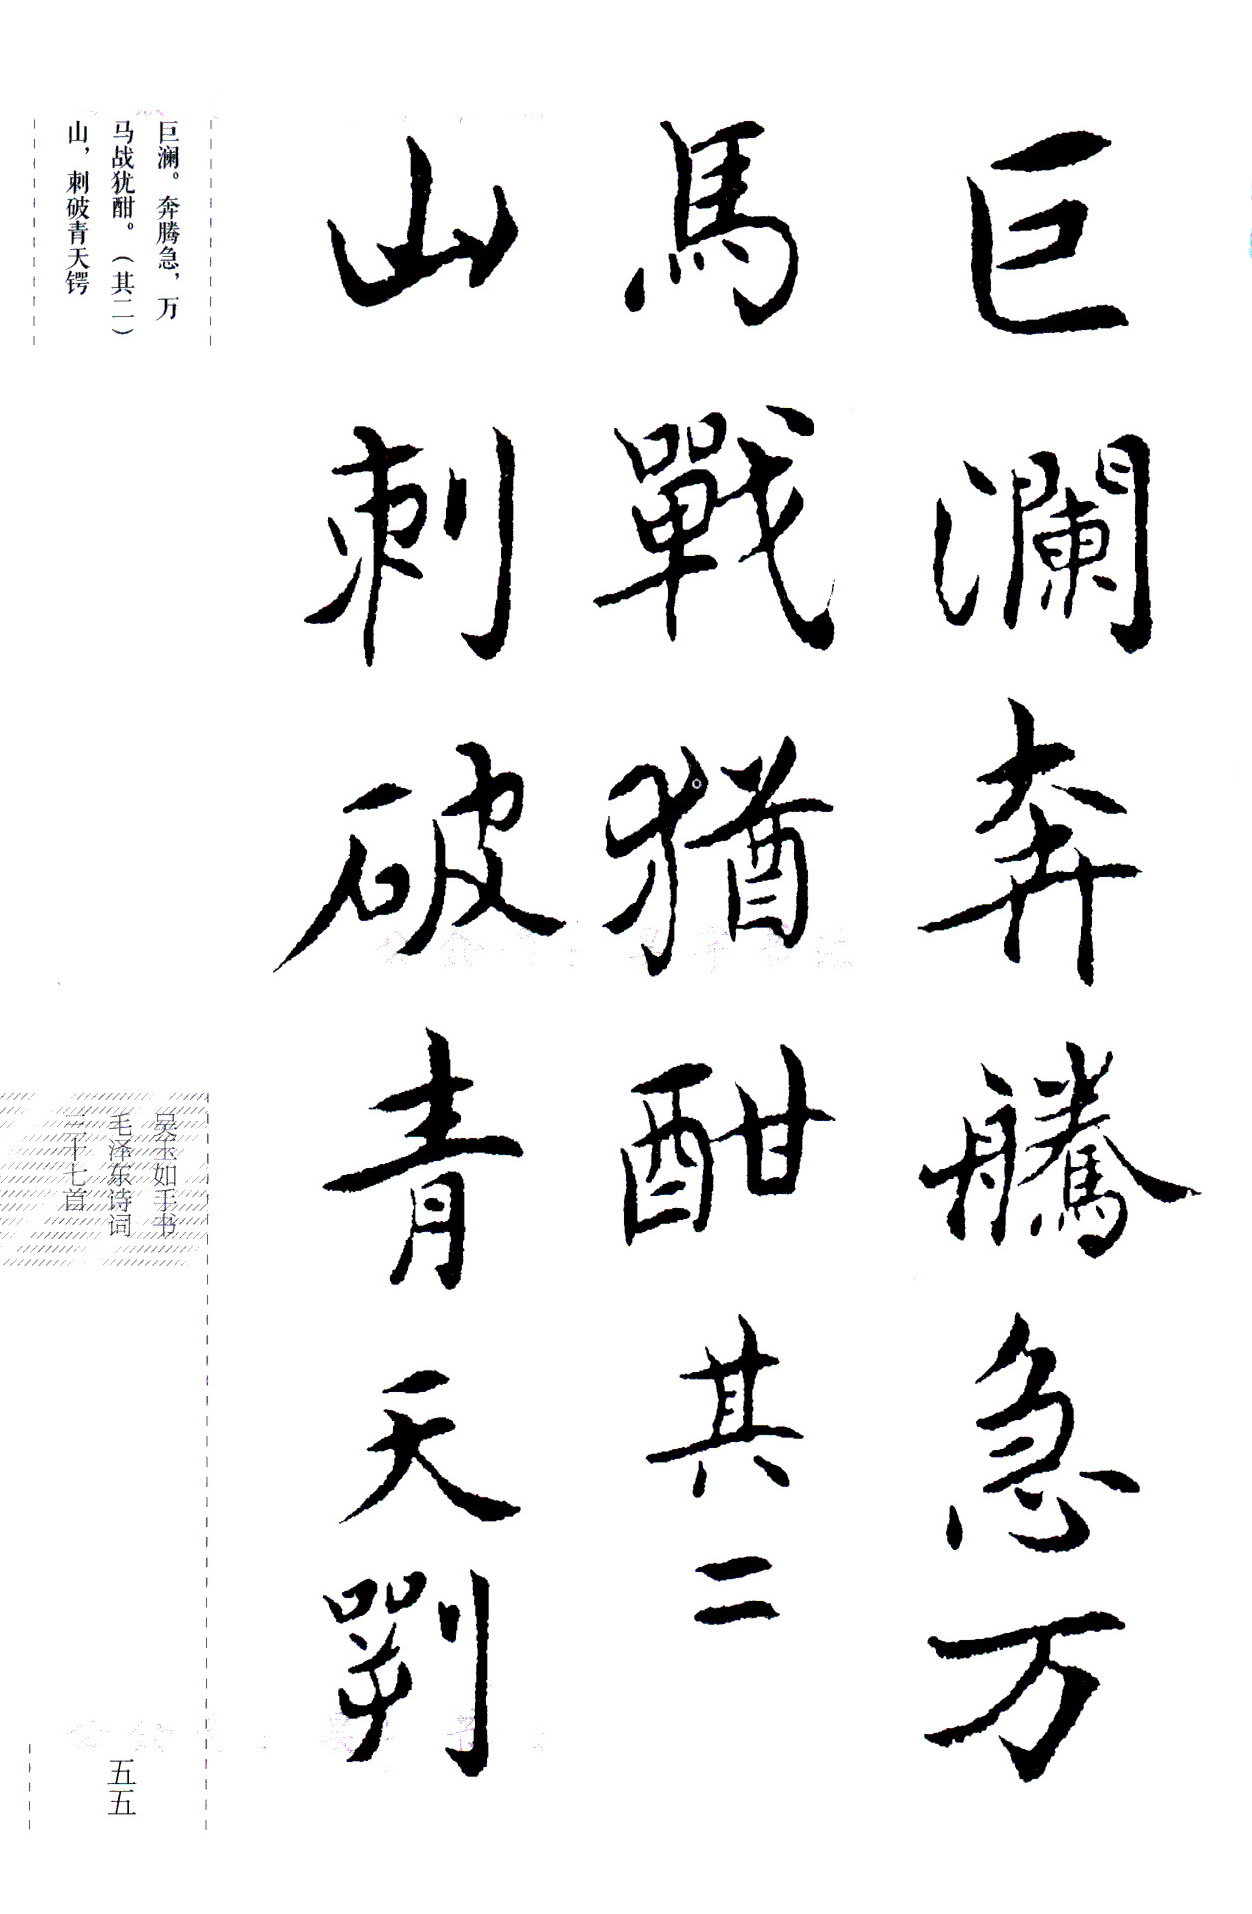 巨瀾奔騰急万
馬戰猶酣其二
山刺破青天㓵
巨澜。奔腾急，万
马战犹酣。（其二）
山，刺破青天锷
吴玉如手书
毛泽东诗词
三十七首
五五